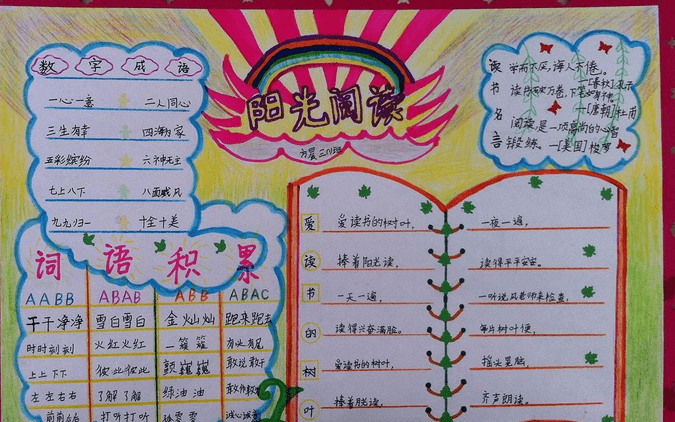 数字成语
一心一意 二人同心
三生有幸 四海为家
五彩缤纷 六神无主
七上八下 八面威风
九九归一 十全十美
阳光阅读
方晨 三(1)班
读书名言
学而不厌,诲人不倦。
—[春秋]孔子
读书破万卷,下笔如有神。
—[唐朝]杜甫
阅读是一项高尚的心智
锻炼。—[美国]梭罗
词语积累
AABB ABAB ABB ABAC
干干净净 雪白雪白 金灿灿 跑来跑去
时时刻刻 火红火红 一簇簇 有头有尾
上上下下 彼此彼此 颤巍巍 敢说敢干
左左右右 了解了解 绿油油
打听打听 诚心诚意
爱读书的树叶
爱读书的树叶, 一夜一遍,
捧着阳光读, 读得平平安安。
一天一遍, 一听说风老师来检查,
读得兴奋满脸。 每片树叶便,
爱读书的树叶, 摇头晃脑,
捧着月光读, 齐声朗读。